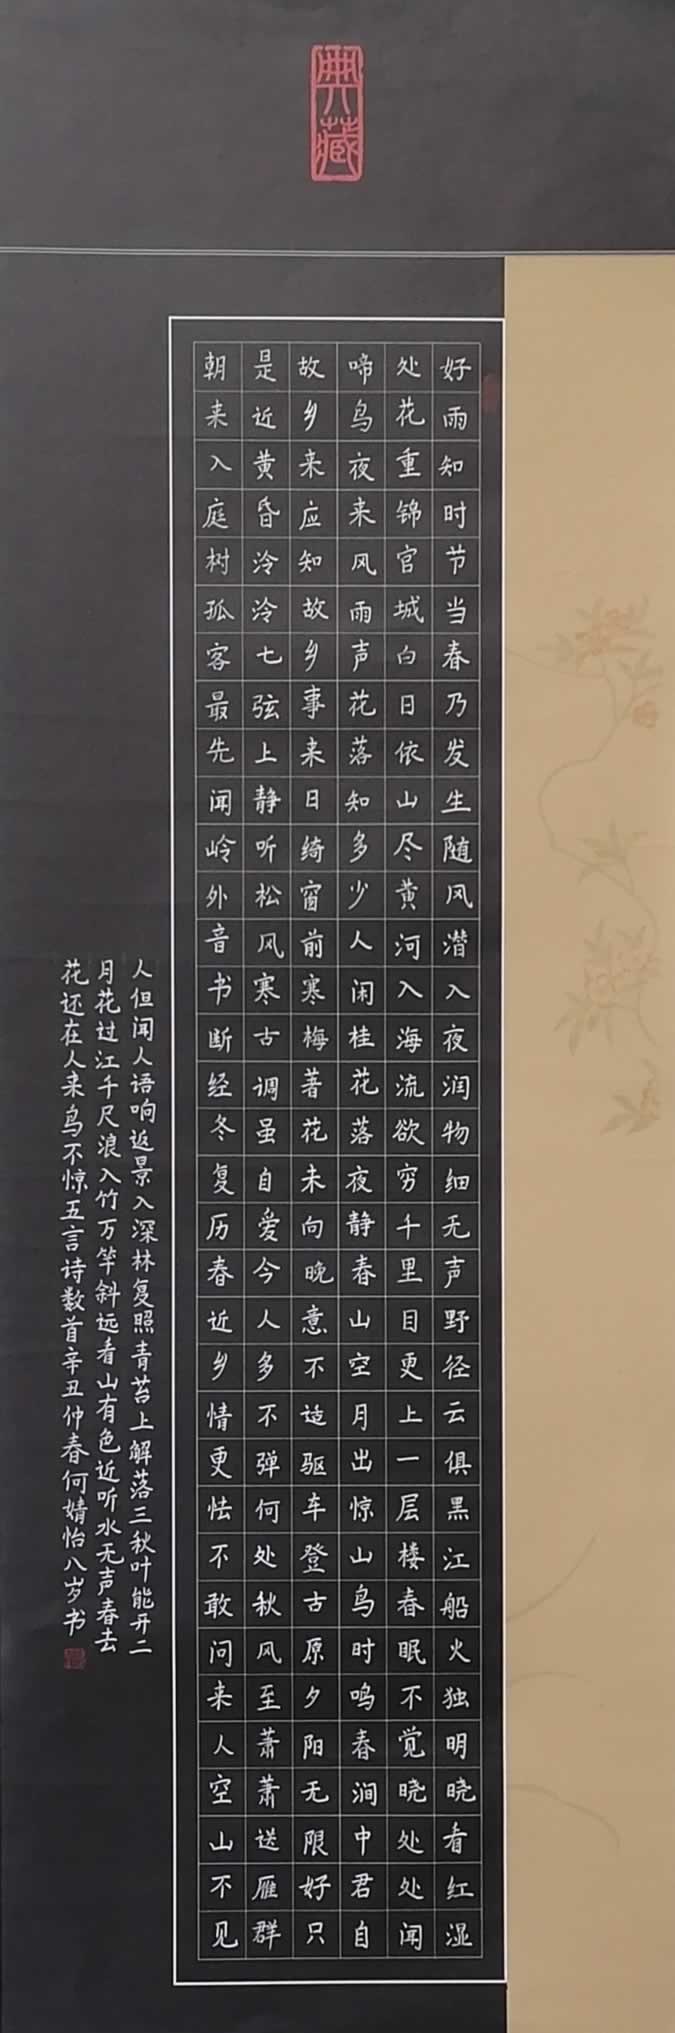 典藏
好雨知时节当春乃发生随风潜入夜润物细无声野径云俱黑江船火独明晓看红湿
处花重锦官城白日依山尽黄河入海流欲穷千里目更上一层楼春眠不觉晓处处闻
啼鸟夜来风雨声花落知多少人闲桂花落夜静春山空月出惊山鸟时鸣春涧中君自
故乡来应知故乡事来日绮窗前寒梅著花未向晚意不适驱车登古原夕阳无限好只
是近黄昏泠泠七弦上静听松风寒古调虽自爱今人多不弹何处秋风至萧萧送雁群
朝来入庭树孤客最先闻岭外音书断经冬复历春近乡情更怯不敢问来人空山不见
人但闻人语响返景入深林复照青苔上解落三秋叶能开二
月花过江千尺浪入竹万竿斜远看山有色近听水无声春去
花还在人来鸟不惊五言诗数首辛丑仲春何婧怡八岁书